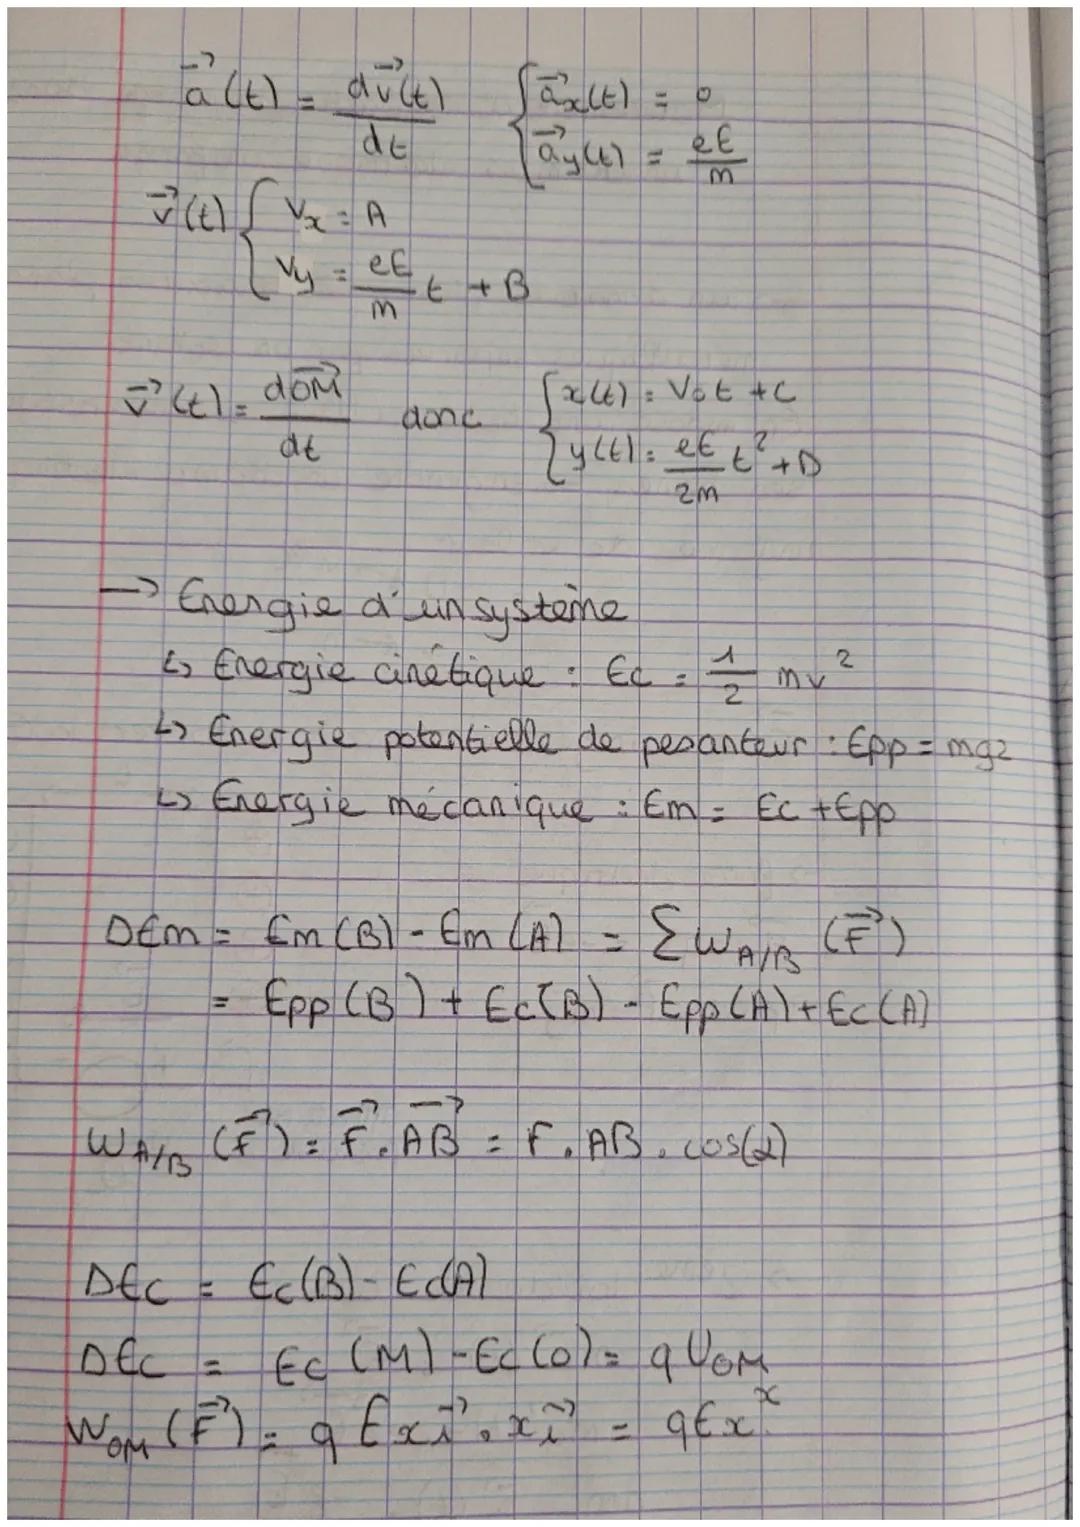 a⃗(t) = dv⃗(t)/dt { a⃗x(t) = 0
{ a⃗y(t) = eE/m
v⃗(t) { Vx = A
{ Vy = eE/m t + B
v⃗(t) = dOM⃗/dt donc { x(t) = V₀t + C
{ y(t) = eE/2m t² + D
→ Energie d'un système
↳ Energie cinétique : Ec = 1/2 mv²
↳ Energie potentielle de pesanteur : Epp = mgz
↳ Energie mécanique : Em = Ec + Epp
DEm = Em(B) - Em(A) = Σ W A/B (F⃗)
= Epp(B) + Ec(B) - Epp(A) + Ec(A)
W A/B (F⃗) = F⃗ . AB⃗ = F . AB . cos(α)
DEc = Ec(B) - Ec(A)
DEc = Ec(M) - Ec(O) = qU OM
W OM (F⃗) = q Ex i⃗ . x i⃗ = qEx x